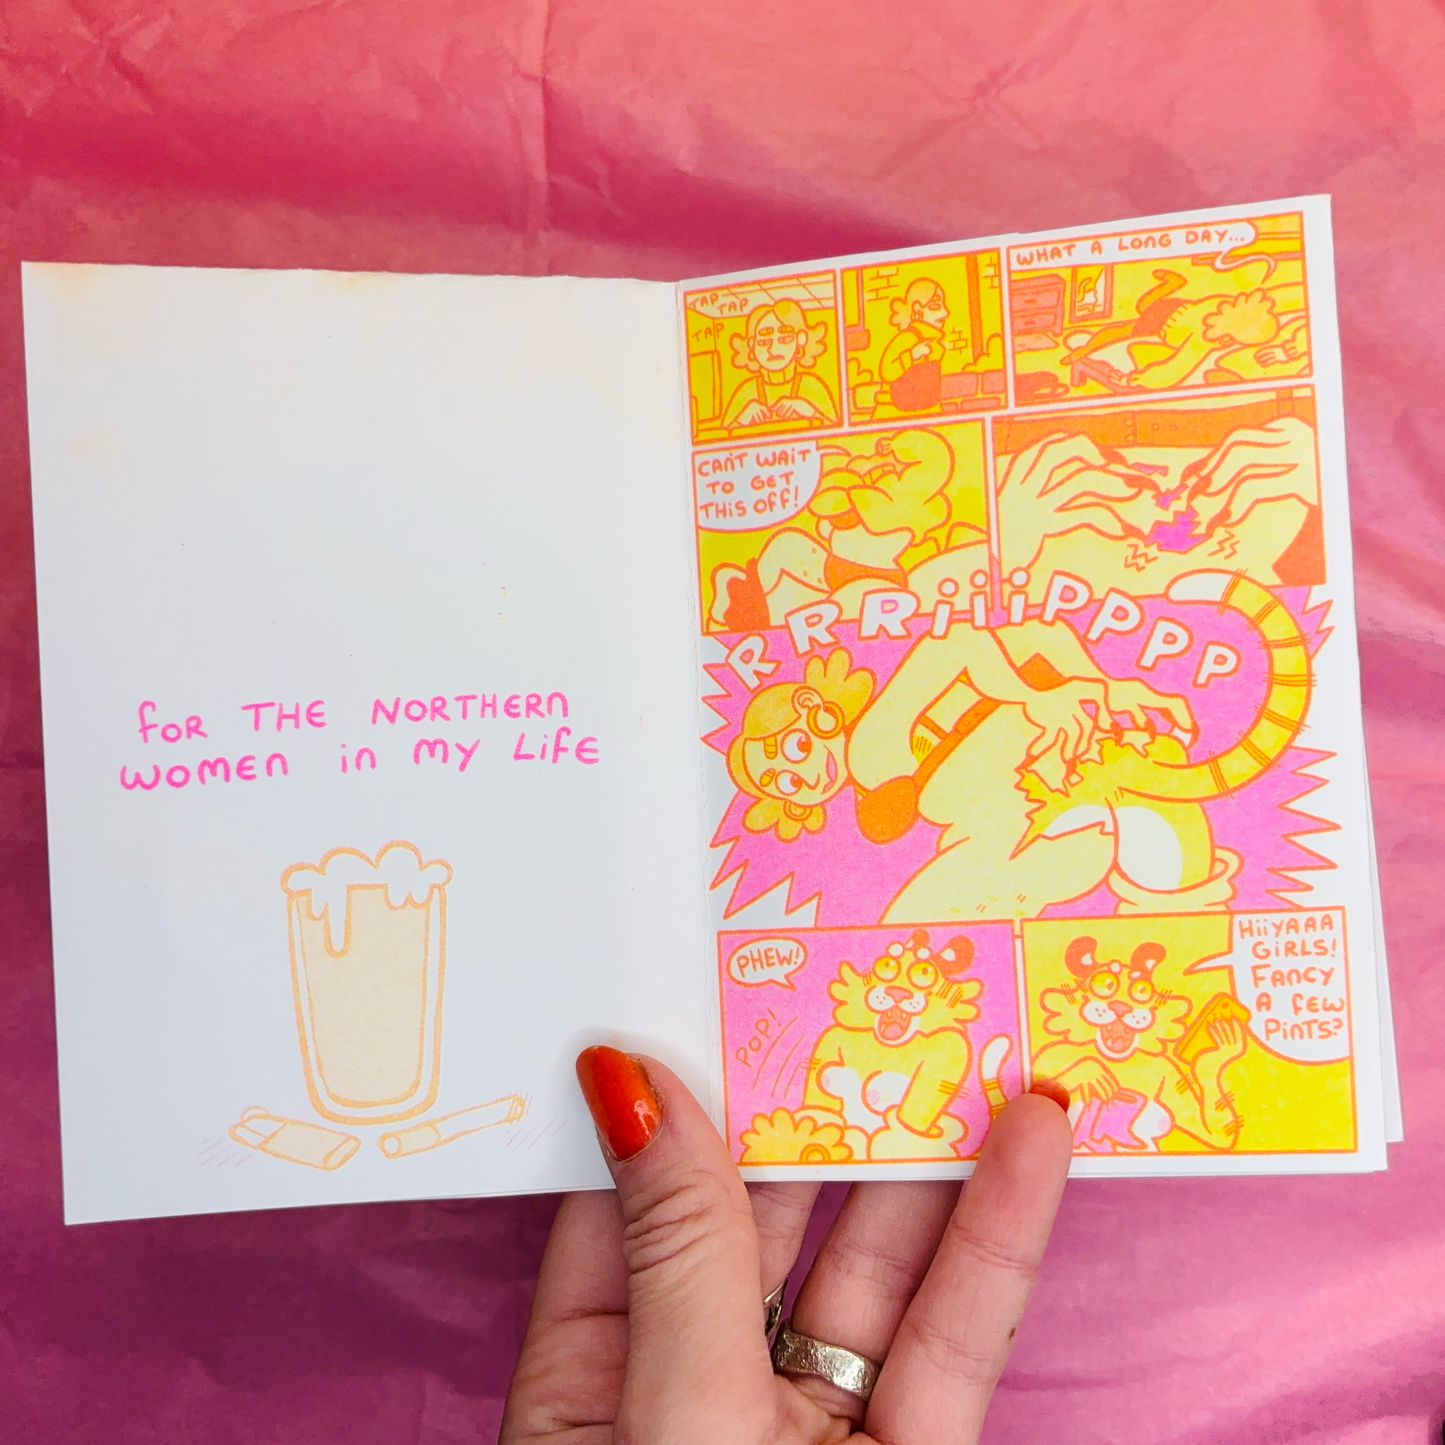 for THE NORTHERN
WOMEN in MY LifE
TAP
TAP
TAP
WHAT A LONG DAY...
CAN'T WAIT
TO GET
THIS Off!
RRRiiiPPPP
PHEW!
POP!
HiiYAAA
GiRLS!
FANCY
A fEW
PiNTS?